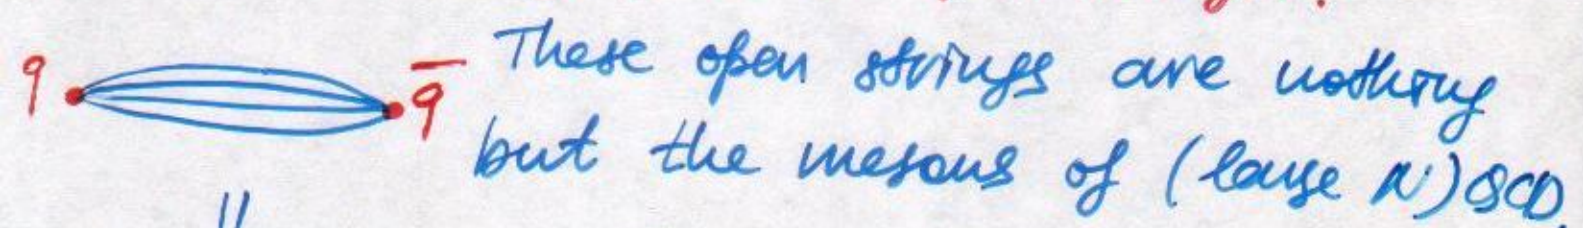 q q̄ These open strings are nothing
but the mesons of (large N) QCD.